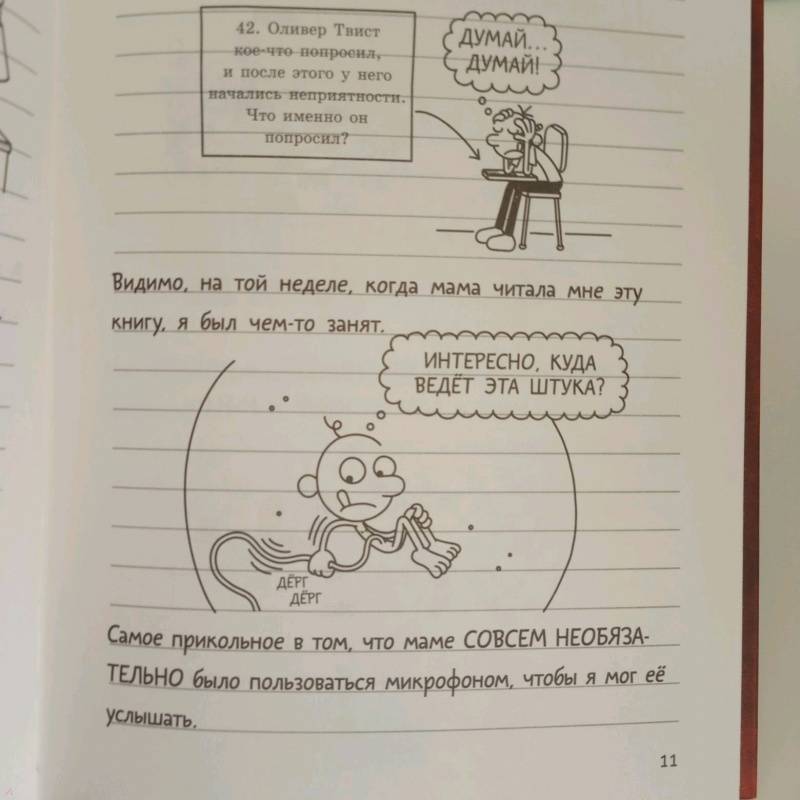 42. Оливер Твист
кое-что попросил,
и после этого у него
начались неприятности.
Что именно он
попросил?
ДУМАЙ...
ДУМАЙ!
Видимо, на той неделе, когда мама читала мне эту
книгу, я был чем-то занят.
ИНТЕРЕСНО, КУДА
ВЕДЁТ ЭТА ШТУКА?
ДЁРГ
ДЁРГ
Самое прикольное в том, что маме СОВСЕМ НЕОБЯЗА-
ТЕЛЬНО было пользоваться микрофоном, чтобы я мог её
услышать.
11